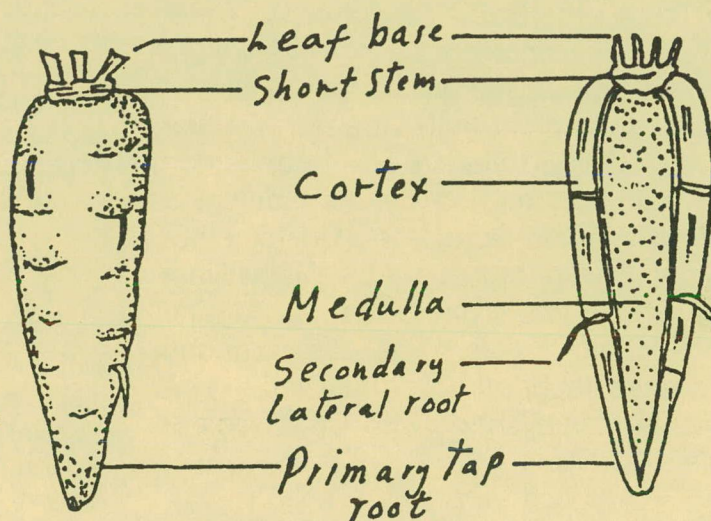 Leaf base
Short stem
Cortex
Medulla
Secondary
lateral root
Primary tap
root